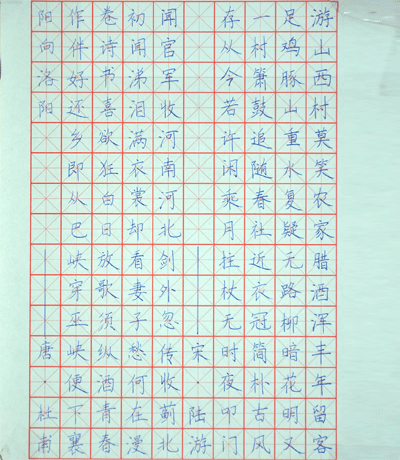 游山西村莫笑农家腊酒浑丰年留客
足鸡豚山重水复疑无路柳暗花明又
一村箫鼓追随春社近衣冠简朴古风
存从今若许闲乘月拄杖无时夜叩门
——宋·陆游
闻官军收河南河北剑外忽传收蓟北
初闻涕泪满衣裳却看妻子愁何在漫
卷诗书喜欲狂白日放歌须纵酒青春
作伴好还乡即从巴峡穿巫峡便下襄
阳向洛阳——唐·杜甫